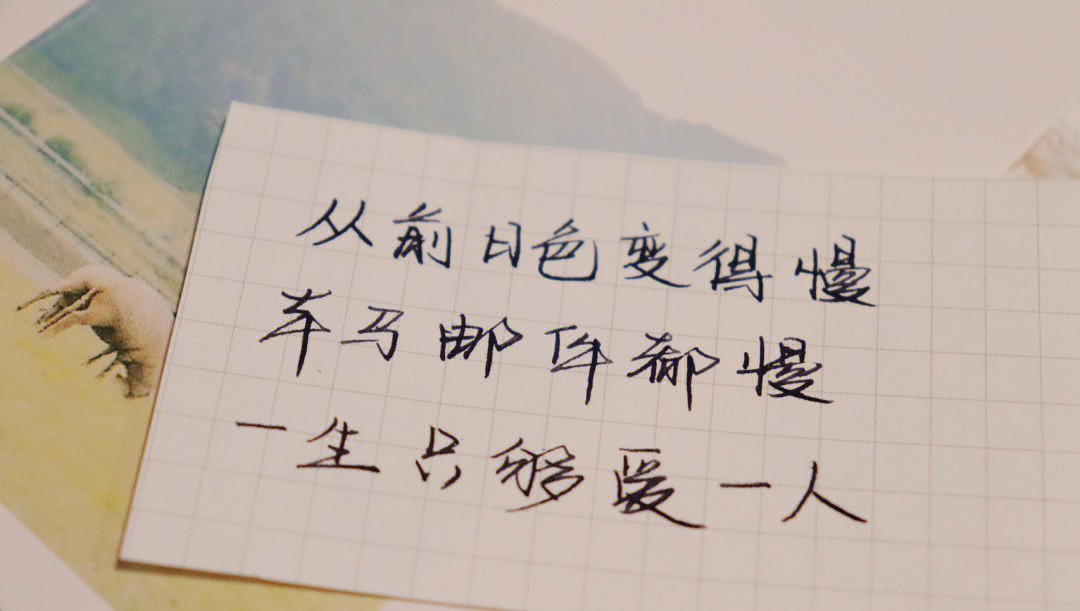 从前日色变得慢
车马邮件都慢
一生只够爱一人